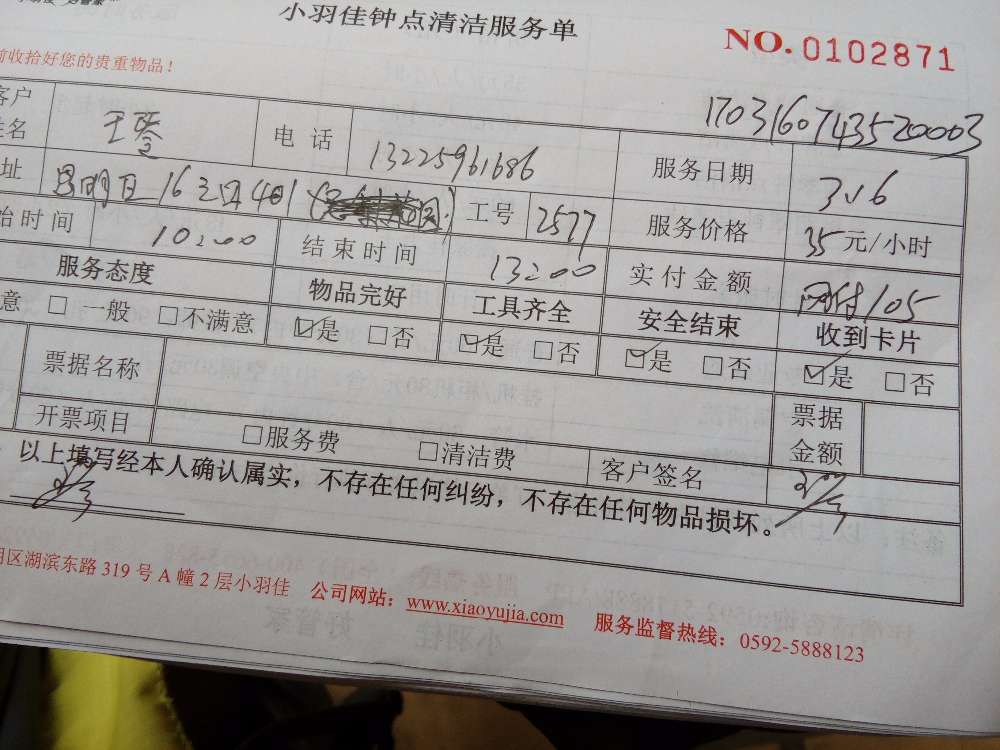 小羽佳钟点清洁服务单
NO. 0102871
前收拾好您的贵重物品！
1703160743520003
客户姓名 王莹 电话 13225961686 服务日期 3.16
址 昆明日 16 4 工号 2577 服务价格 35元/小时
始时间 10:00 结束时间 13:00 实付金额 网付105
服务态度 物品完好 工具齐全 安全结束 收到卡片
意 □一般 □不满意 ☑是 □否 ☑是 □否 ☑是 □否 ☑是 □否
票据名称 票据金额
开票项目 □服务费 □清洁费 客户签名
以上填写经本人确认属实，不存在任何纠纷，不存在任何物品损坏。
明区湖滨东路 319 号 A 幢 2 层小羽佳 公司网站：www.xiaoyujia.com 服务监督热线：0592-5888123